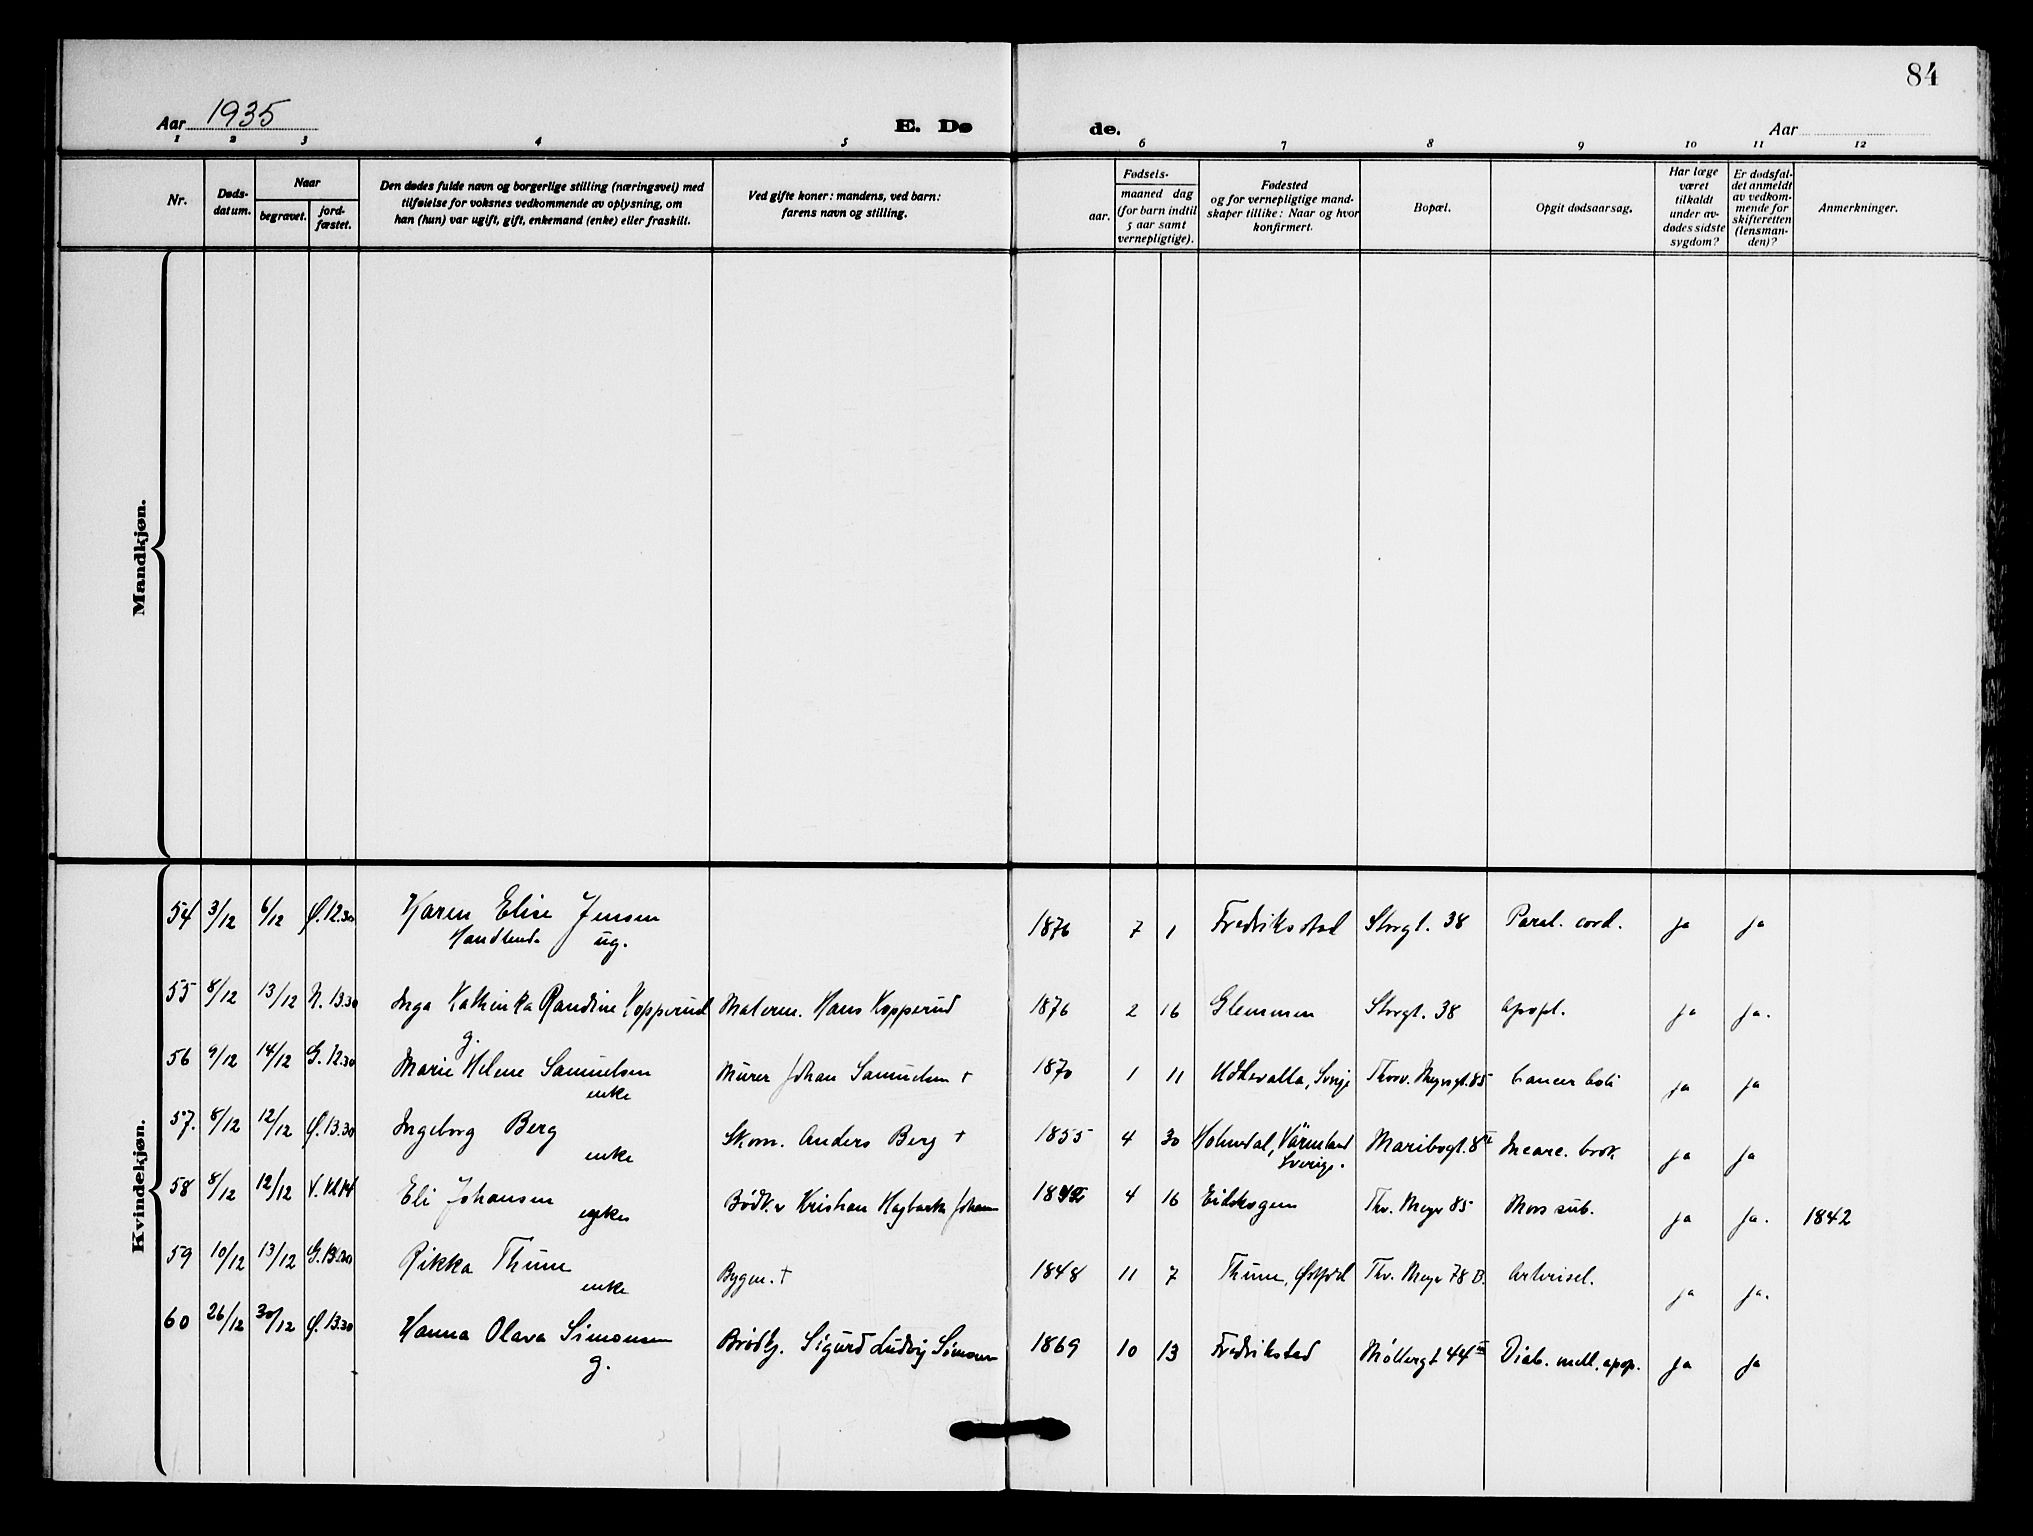 84
Aar 1935
E. Dø
de.
Aar
1 2 3 4 5 6 7 8 9 10 11 12
Nr.
Døds-
datum.
Naar
begravet.
jord-
fæstet.
Den dødes fulde navn og borgerlige stilling (næringsvei) med
tilføielse for voksnes vedkommende av oplysning, om
han (hun) var ugift, gift, enkemand (enke) eller fraskilt.
Ved gifte koner: mandens, ved barn:
farens navn og stilling.
Fødsels-
aar.
maaned dag
(for barn indtil
5 aar samt
vernepligtige).
Fødested
og for vernepligtige mand-
skaper tillike: Naar og hvor
konfirmert.
Bopæl.
Opgit dødsaarsag.
Har læge
været
tilkaldt
under av-
dødes sidste
sygdom?
Er dødsfal-
det anmeldt
av vedkom-
mende for
skifteretten
(lensman-
den)?
Anmerkninger.
Mandkjøn.
Kvindekjøn.
54 3/12 6/12 Ø. 12.30 Karen Elise Jensen 1876 7 1 Fredrikstad Storgt. 38 Paral. cord. ja ja
Handlend. ug.
55 8/12 13/12 N. 13.30 Inga Kathinka Randine Kopperud Materm. Hans Kopperud 1876 2 16 Glemmen Storgt. 38 Apopl. ja ja.
g.
56 9/12 14/12 G. 12.30 Marie Helene Samuelsen Murer Johan Samuelsen + 1870 1 11 Uddevalla, Sverige Thorv. Meyersgt. 85 Cancer coli ja ja
enke
57. 8/12 12/12 Ø. 13.30 Ingeborg Berg Skom. Anders Berg + 1855 4 30 Holmedal, Värmland Maribogt. 8 Incarc. brok ja ja
enke Sverige.
58 8/12 12/12 V. 14 Eli Johansen Bødker Kristian Johan 4 16 Eidskogen Thv. Meyer 85 Mors sub. ja ja. 1842
enke
59 10/12 13/12 G. Rikka Thune Bygm. + 1848 11 7 Thune, Østfold Thv. Meyer 78 B. Arteriscl. ja ja.
enke
60 26/12 30/12 Ø. 13.30 Hanna Olava Simonsen Brødkj. Sigurd Ludvig Simonsen 1869 10 13 Fredrikstad Møllergt 44 III Diab. mell. apop. ja ja
g.